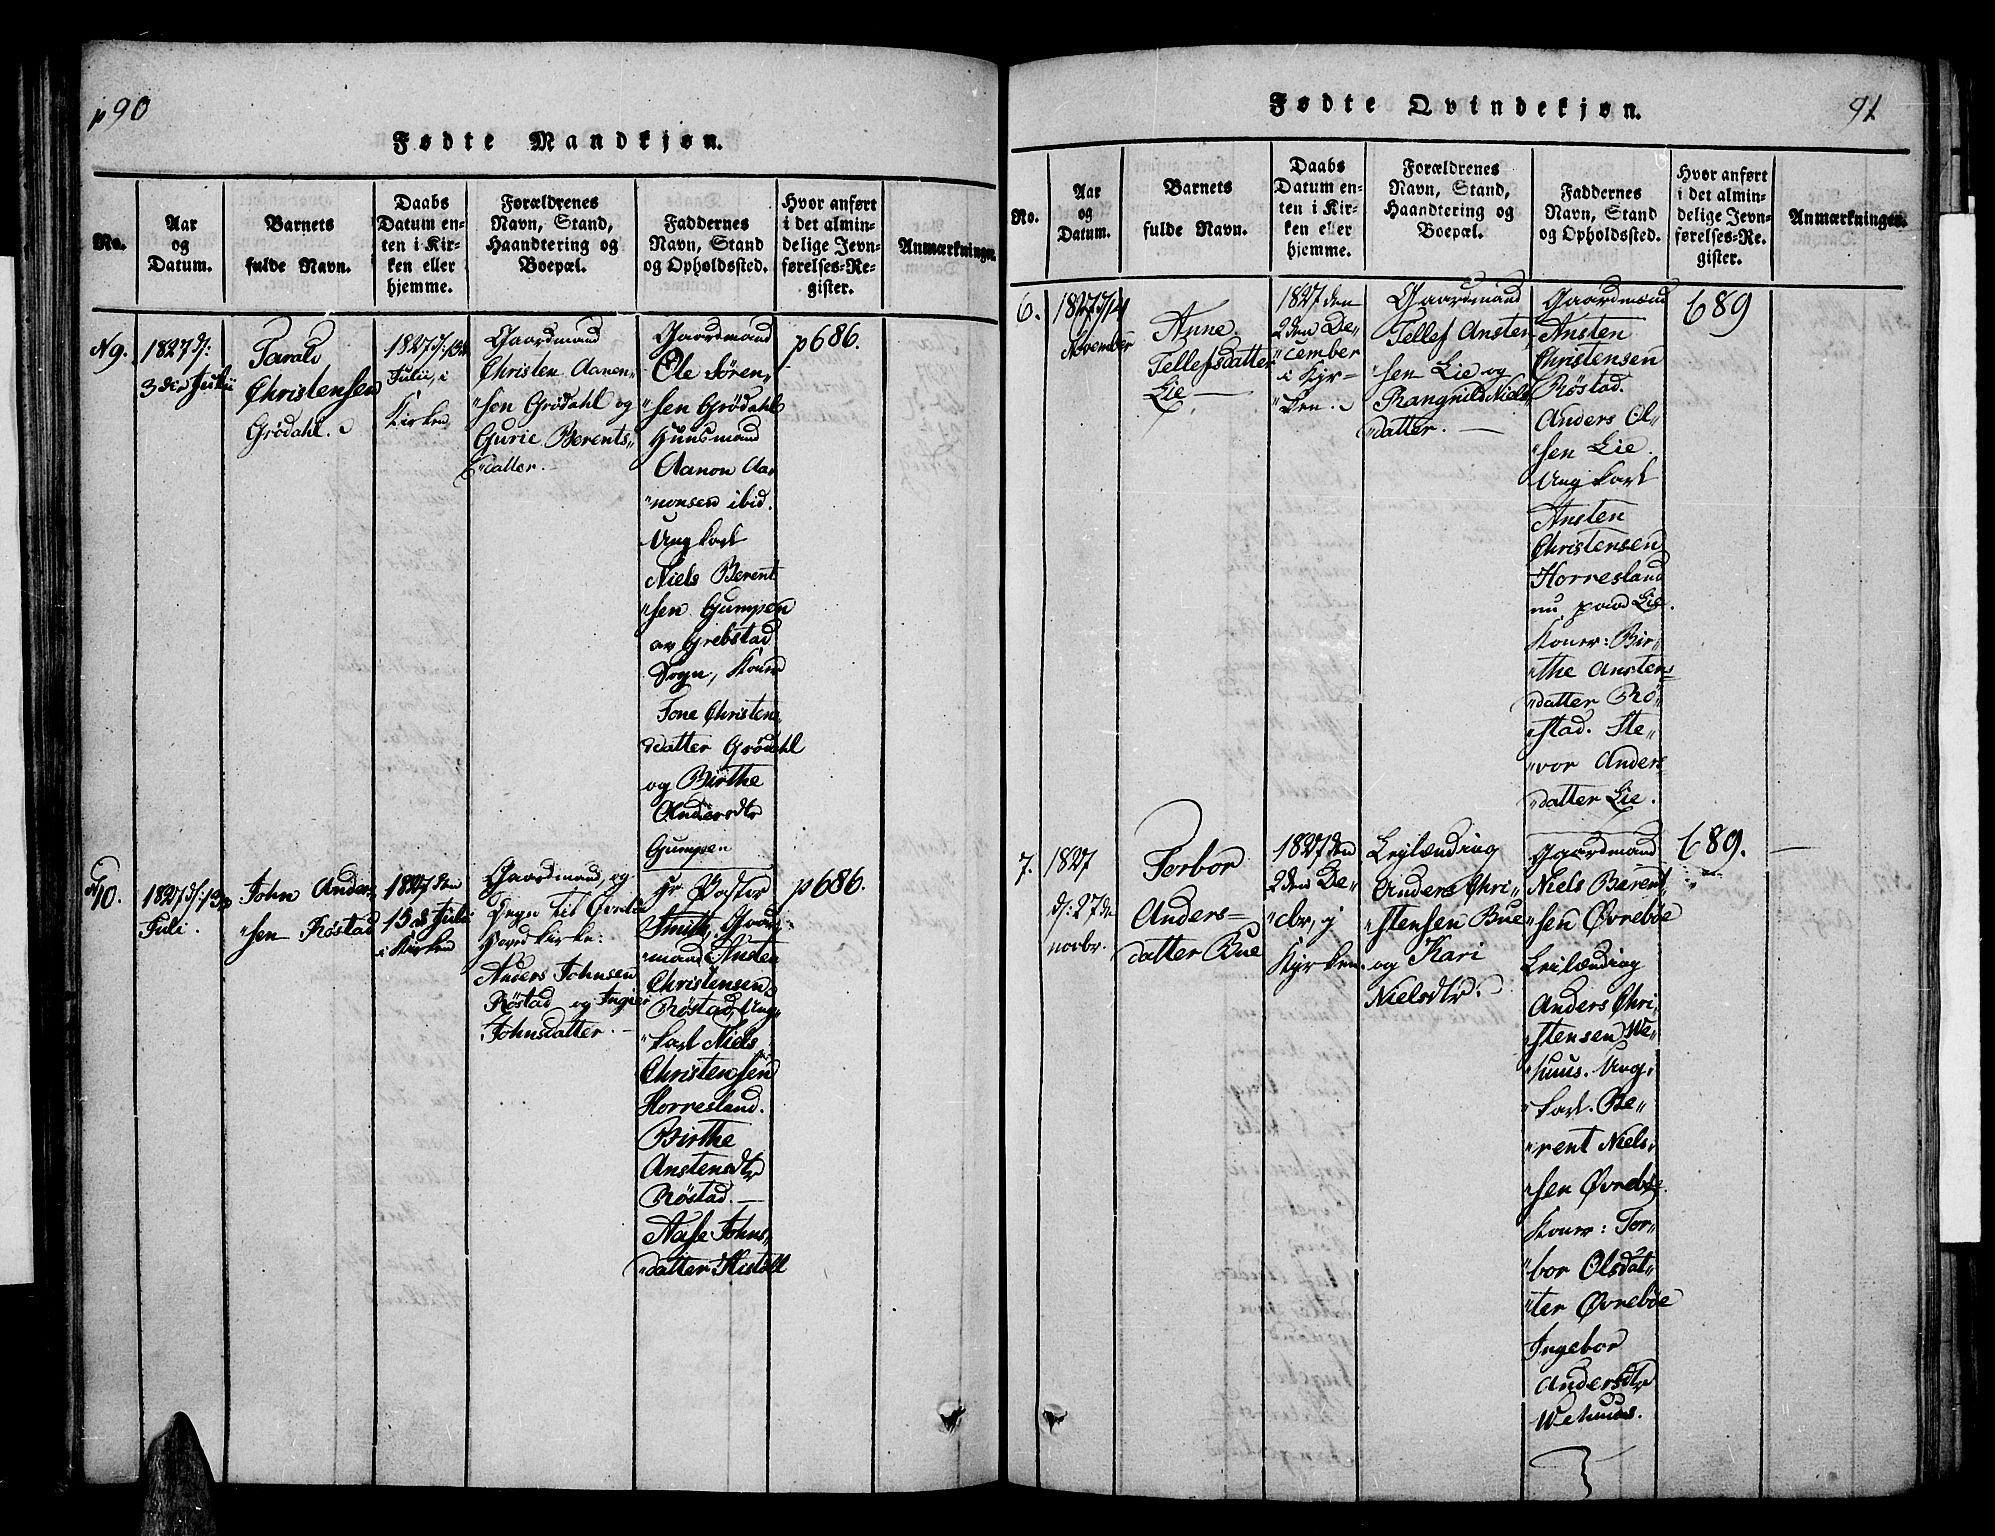 p 90
Fødte Mandkjøn.
No.
Aar
og
Datum.
Barnets
fulde Navn.
Daabs
Datum en-
ten i Kir-
ken eller
hjemme.
Forældrenes
Navn, Stand,
Haandtering og
Boepæl.
Faddernes
Navn, Stand
og Opholdssted.
Hvor anført
i det almin-
delige Jevn-
førelses-Re-
gister.
Anmærkninger.
N 9.
1827 d:
3die Julii
Taralv
Christensen
Grödahl.
1827 d: 13de
Julii, i
Kirken
Gaardmand
Christen Aanen„
„sen Grödahl og
Gurie Berents„
„datter.
Gaardmand
Ole Sören„
„sen Grödahl
Huusmand
Aanon Aa„
„nonsen ibid.
Ung karl
Niels Berent
„sen Gumpen
av Grebstad
Sogn, Kone
Tone Christens„
datter Grödahl
og Birthe
Andersdtr
Gumpen
p 686.
10.
1827 d: 13de
Juli.
John Anders„
„sen Röstad
1827 den
15de Julii
i Kirken
Gaardmand, og
Degn til Övreböe
Hovedkirke:
Anders Johnsen
Röstad og Ingier
Johnsdatter.
Hr Pastor
Smith, Gaard„
„mand Ansten
Christensen
Röstad, Ung„
„karl Niels
Christensen
Horresland.
Birthe
Anstensdtr
Röstad.
Aase Johns„
datter Histöll
p 686.
91
Fødte Qvindekjøn.
No.
Aar
og
Datum.
Barnets
fulde Navn.
Daabs
Datum en-
ten i Kir-
ken eller
hjemme.
Forældrenes
Navn, Stand,
Haandtering og
Boepæl.
Faddernes
Navn, Stand
og Opholdssted.
Hvor anført
i det almin-
delige Jevn-
førelses-Re-
gister.
Anmærkninger.
6.
1827 d/14
November
Anne
Tellefsdatter
Lie
1827 den
2den De„
„cember
i Kyr„
„ken.
Gaardmand
Tellef Ansten
„sen Lie og
Rangnild Niels„
„datter.
Gaardmand
Ansten
Christensen
Röstad.
Anders Ol„
„sen Lie.
Ung karl
Ansten
Christensen
Horresland
nu paa Lie.
Koner: Bir„
„the Anstens„
„datter Rö„
„stad. Ste„
„vor Anders„
„datter Lie.
689
7.
1827
d: 27de
novbr.
Torbor
Anders„
datter Bue
1827 den
2den De„
„cbr, i
Kyrken.
Leilænding
Anders Chri„
„stensen Bue
og Kari
Nielsdtr:
Gaardmand
Niels Berent„
„sen Övreböe
Leilænding
Anders Chri„
„stensen We„
„huus. Ung„
„karl. Be„
„rent Niels„
„sen Övreböe.
Koner: Tor„
„bor Olsdat„
„ter Övreböe
Ingebor
Andersdtr
Wehuus.
689.